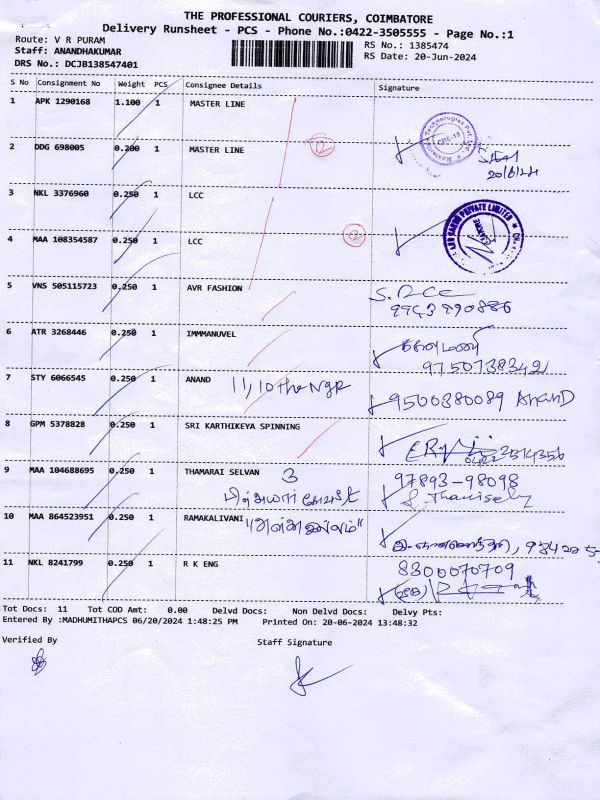 THE PROFESSIONAL COURIERS, COIMBATORE
Delivery Runsheet - PCS - Phone No.:0422-3505555 - Page No.:1
Route: V R PURAM
Staff: ANANDHAKUMAR
DRS No.: DCJB138547401
RS No.: 1385474
RS Date: 20-Jun-2024
S No Consignment No Weight PCS Consignee Details Signature
1 APK 1290168 1.100 1 MASTER LINE
2 DDG 698005 0.200 1 MASTER LINE
12
CBE-18
20/6/24
3 NKL 3376960 0.250 1 LCC
4 MAA 108354587 0.250 1 LCC
5 VNS 505115723 0.250 1 AVR FASHION
6 ATR 3268446 0.250 1 IMMMANUVEL
9750738342
7 STY 6066545 0.250 1 ANAND 11,10 the Ngr 9500380089 Anand
8 GPM 5378828 0.250 1 SRI KARTHIKEYA SPINNING
9 MAA 104688695 0.250 1 THAMARAI SELVAN 3 97893-98098
10 MAA 864523951 0.250 1 RAMAKALIVANI
11 NKL 8241799 0.250 1 R K ENG 8300070709
Tot Docs: 11 Tot COD Amt: 0.00 Delvd Docs: Non Delvd Docs: Delvy Pts:
Entered By :MADHUMITHAPCS 06/20/2024 1:48:25 PM Printed On: 20-06-2024 13:48:32
Verified By Staff Signature